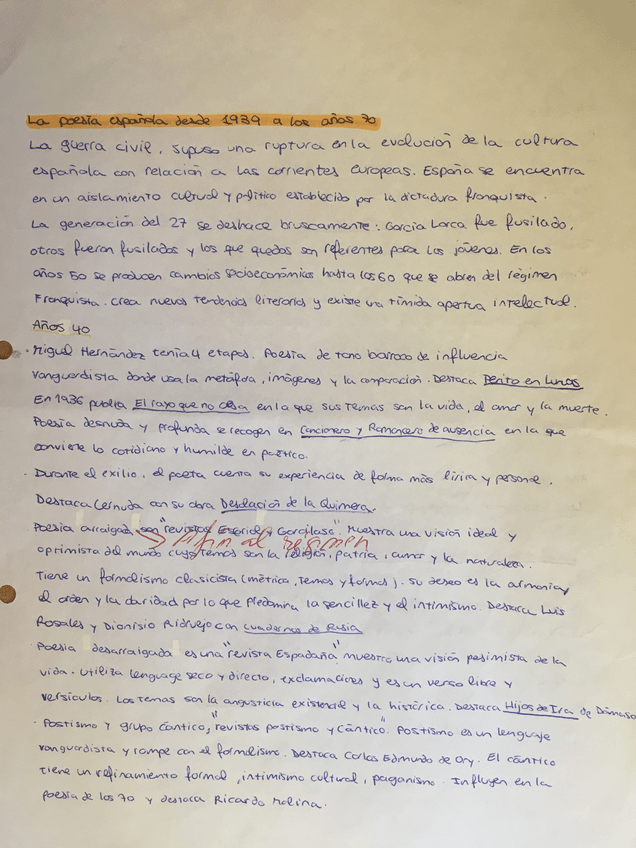 La poesía española desde 1939 a los años 70
La guerra civil, supuso una ruptura en la evolución de la cultura
española con relación a las corrientes europeas. España se encuentra
en un aislamiento cultural y político establecido por la dictadura franquista.
La generación del 27 se deshace bruscamente: García Lorca fue fusilado,
otros fueron fusilados y los que quedas son referentes para los jóvenes. En los
años 50 se producen cambios socioeconómicos hasta los 60 que se abren del régimen
Franquista. crea nuevas tendencias literarias y existe una tímida apertura intelectual.
Años 40
· Miguel Hernández tenía 4 etapas. Poesía de tono barroco de influencia
vanguardista donde usa la metáfora, imágenes y la comparación. Destaca Perito en Lunas
En 1936 publica El rayo que no cesa en la que sus temas son la vida, el amor y la muerte.
Poesía desnuda y profunda se recogen en Cancionero y Romancero de ausencia en la que
convierte lo cotidiano y humilde en poético.
· Durante el exilio, el poeta cuenta su experiencia de forma más lírica y personal.
Destaca Cernuda con su obra Desolación de la Quimera.
Poesía arraigada son "revistas Escorial y Garcilaso". Muestra una visión ideal y
→ afín al régimen
optimista del mundo cuyo temas son la religión, patria, amor y la naturaleza.
Tiene un formalismo clasicista (métrica, temas y formas). su deseo es la armonía,
el orden y la claridad por lo que Predomina la sencillez y el intimismo. Destaca Luis
Rosales y Dionisio Ridruejo con cuadernos de Rusia
· Poesía desarraigada es una "revista Espadaña" muestra una visión pesimista de la
vida. Utiliza lenguage seco y directo, exclamaciones y es un verso libre y
versículos. Los temas son la angusticia existencial y la histórica. Destaca Hijos de Ira de Dámaso
· Postismo y grupo cántico, "revistas postismo y Cántico". Postismo es un lenguaje
vanguardista y rompe con el formalismo. Destaca Carlos Edmundo de Ory. El cántico
tiene un refinamiento formal, intimismo cultural, paganismo. Influyen en la
poesía de los 70 y destaca Ricardo Molina.